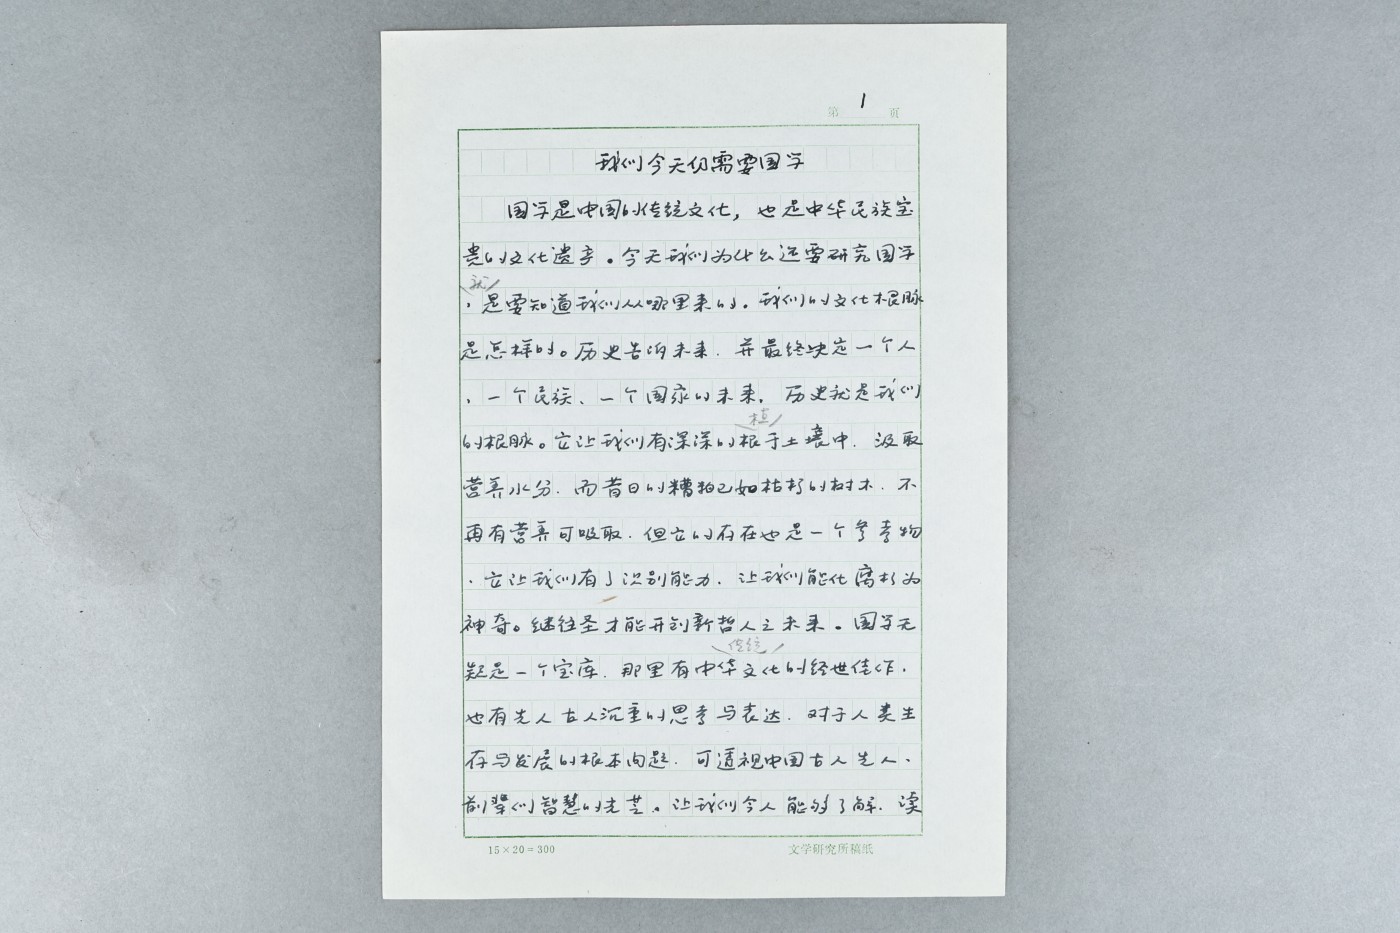 第 1 页
我们今天仍需要国学
国学是中国的传统文化，也是中华民族宝
贵的文化遗产。今天我们为什么还要研究国学
就
，是要知道我们从哪里来的。我们的文化根脉
是怎样的。历史告诉未来，并最终决定一个人
、一个民族、一个国家的未来，历史就是我们
植
的根脉。它让我们有深深的根于土壤中，汲取
营养水分，而昔日的糟粕已如枯朽的树木，不
再有营养可吸取，但它的存在也是一个参考物
，它让我们有了识别能力，让我们能化腐朽为
神奇。继往圣才能开创新哲人之未来。国学无
传统
疑是一个宝库，那里有中华文化的经世佳作，
也有先人古人沉重的思考与表达，对于人类生
存与发展的根本问题，可透视中国古人先人、
前辈们智慧的光芒。让我们今人能够了解，读
15×20=300
文学研究所稿纸